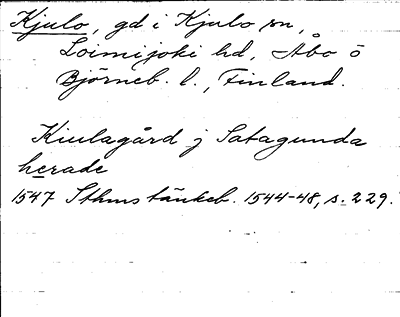 Kjulo, gd i Kjulo sn,
Loimijoki hd, Åbo o
Björneb. l., Finland.
Kiulagård j Satagunda
herade
1547 Sthms tänkeb. 1544-48, s. 229.